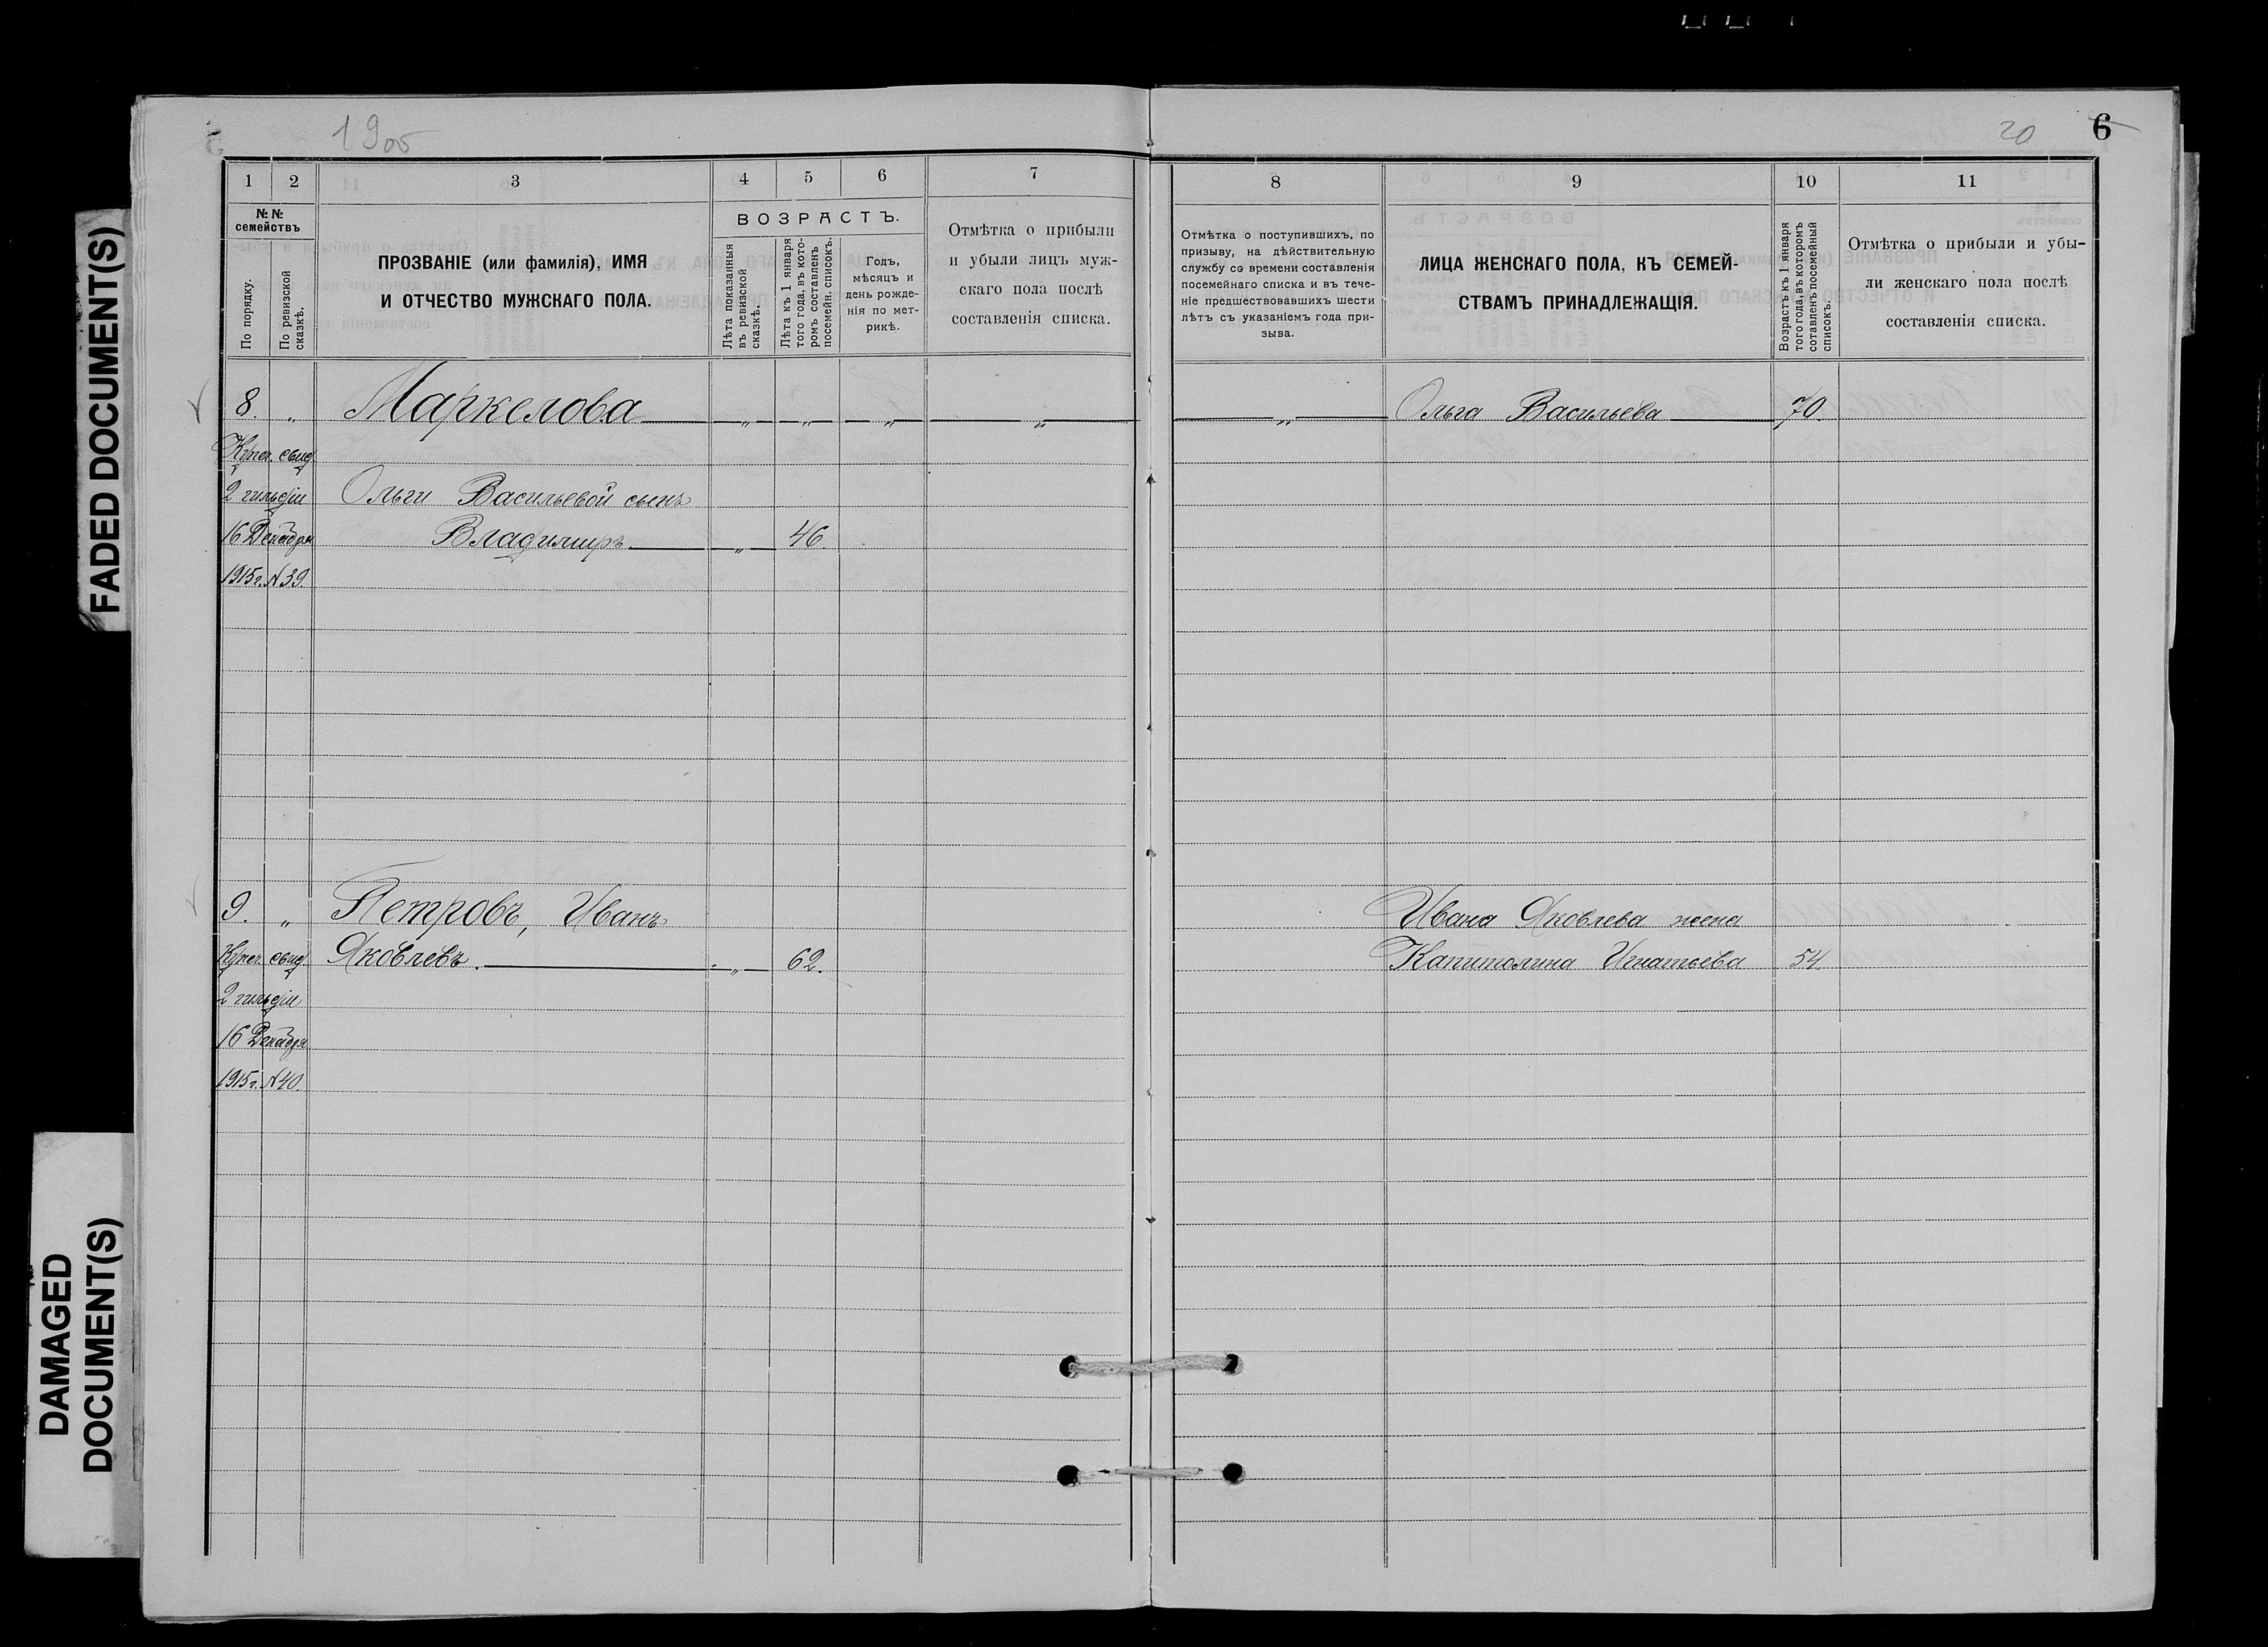 FADED DOCUMENT(S)
DAMAGED
DOCUMENT(S)
1905
20
6
1 2 3 4 5 6 7 8 9 10 11
№№
семействъ
По порядку.
По ревизской
сказкѣ.
ПРОЗВАНІЕ (или фамилія), ИМЯ
И ОТЧЕСТВО МУЖСКАГО ПОЛА.
ВОЗРАСТЪ.
Лѣта показанныя
въ ревизской
сказкѣ.
Лѣта къ 1 января
того года, въ кото-
ромъ составленъ
посемейн. списокъ.
Годъ,
мѣсяцъ и
день рожде-
нія по мет-
рикѣ.
Отмѣтка о прибыли
и убыли лицъ муж-
скаго пола послѣ
составленія списка.
Отмѣтка о поступившихъ, по
призыву, на дѣйствительную
службу со времени составленія
посемейнаго списка и въ тече-
ніе предшествовавшихъ шести
лѣтъ съ указаніемъ года при-
зыва.
ЛИЦА ЖЕНСКАГО ПОЛА, КЪ СЕМЕЙ-
СТВАМЪ ПРИНАДЛЕЖАЩІЯ.
Возрастъ къ 1 января
того года, въ которомъ
сотавленъ посемейный
списокъ.
Отмѣтка о прибыли и убы-
ли женскаго пола послѣ
составленія списка.
8. „ Маркелова „ „ „ „ „ Ольга Васильева 70.
Купеч. свид.
2 гильдіи Ольги Васильевой сынъ
16 Декабря Владимиръ „ 46.
1915 г. № 39.
9. „ Петровъ, Иванъ Ивана Яковлева жена
Купеч. свид. Яковлевъ. „ 62. Капитолина Игнатьева 54.
2 гильдіи
16 Декабря
1915 г. № 40.